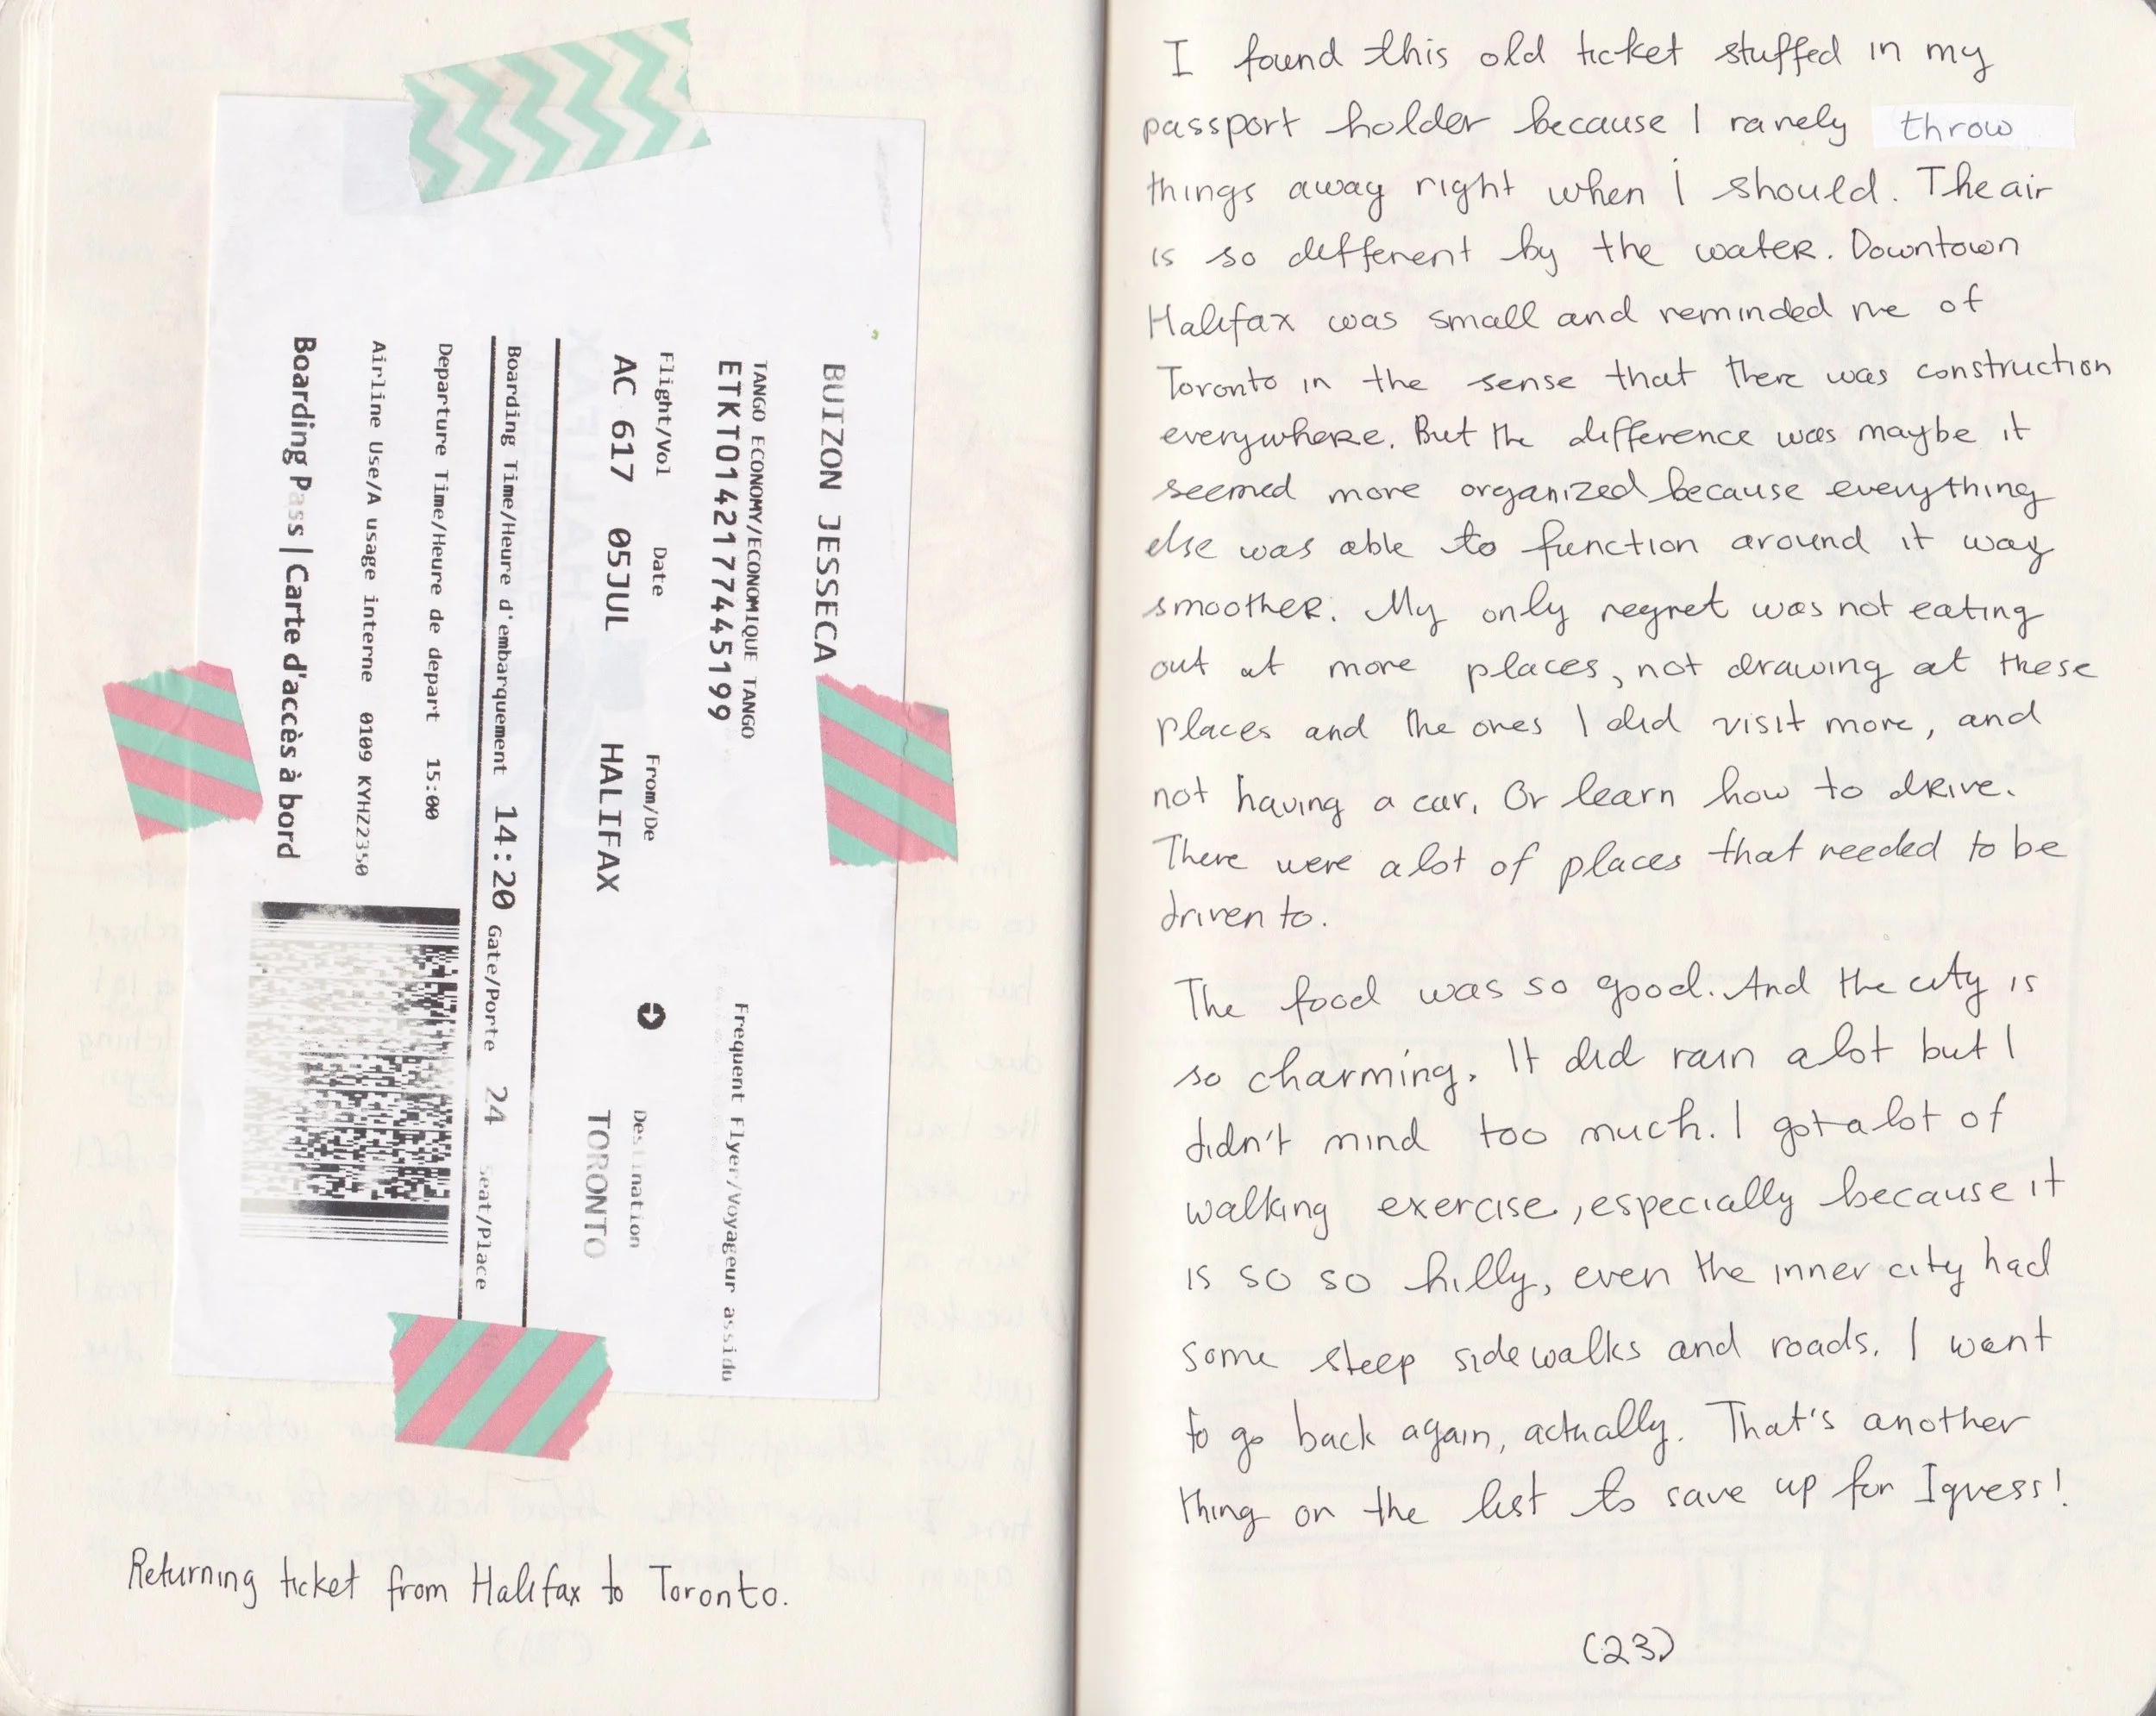 BUIZON JESSECA
TANGO ECONOMY/ECONOMIQUE TANGO
ETKT0142177445199
Frequent Flyer/Voyageur assidu
Flight/Vol Date From/De Destination
AC 617 05JUL HALIFAX TORONTO
Boarding Time/Heure d'embarquement 14:20 Gate/Porte 24 Seat/Place
Departure Time/Heure de depart 15:00
Airline Use/A usage interne 0109 KYHZ2350
Boarding Pass | Carte d'accès à bord
Returning ticket from Halifax to Toronto.
I found this old ticket stuffed in my
passport holder because I rarely throw
things away right when i should. The air
is so different by the water. Downtown
Halifax was small and reminded me of
Toronto in the sense that there was construction
everywhere. But the difference was maybe it
seemed more organized because everything
else was able to function around it way
smoother. My only regret was not eating
out at more places, not drawing at these
places and the ones I did visit more, and
not having a car. Or learn how to drive.
There were alot of places that needed to be
driven to.
The food was so good. And the city is
so charming. It did rain alot but I
didn't mind too much. I got alot of
walking exercise, especially because it
is so so hilly, even the inner city had
some steep sidewalks and roads. I want
to go back again, actually. That's another
thing on the list to save up for I guess!
(23)